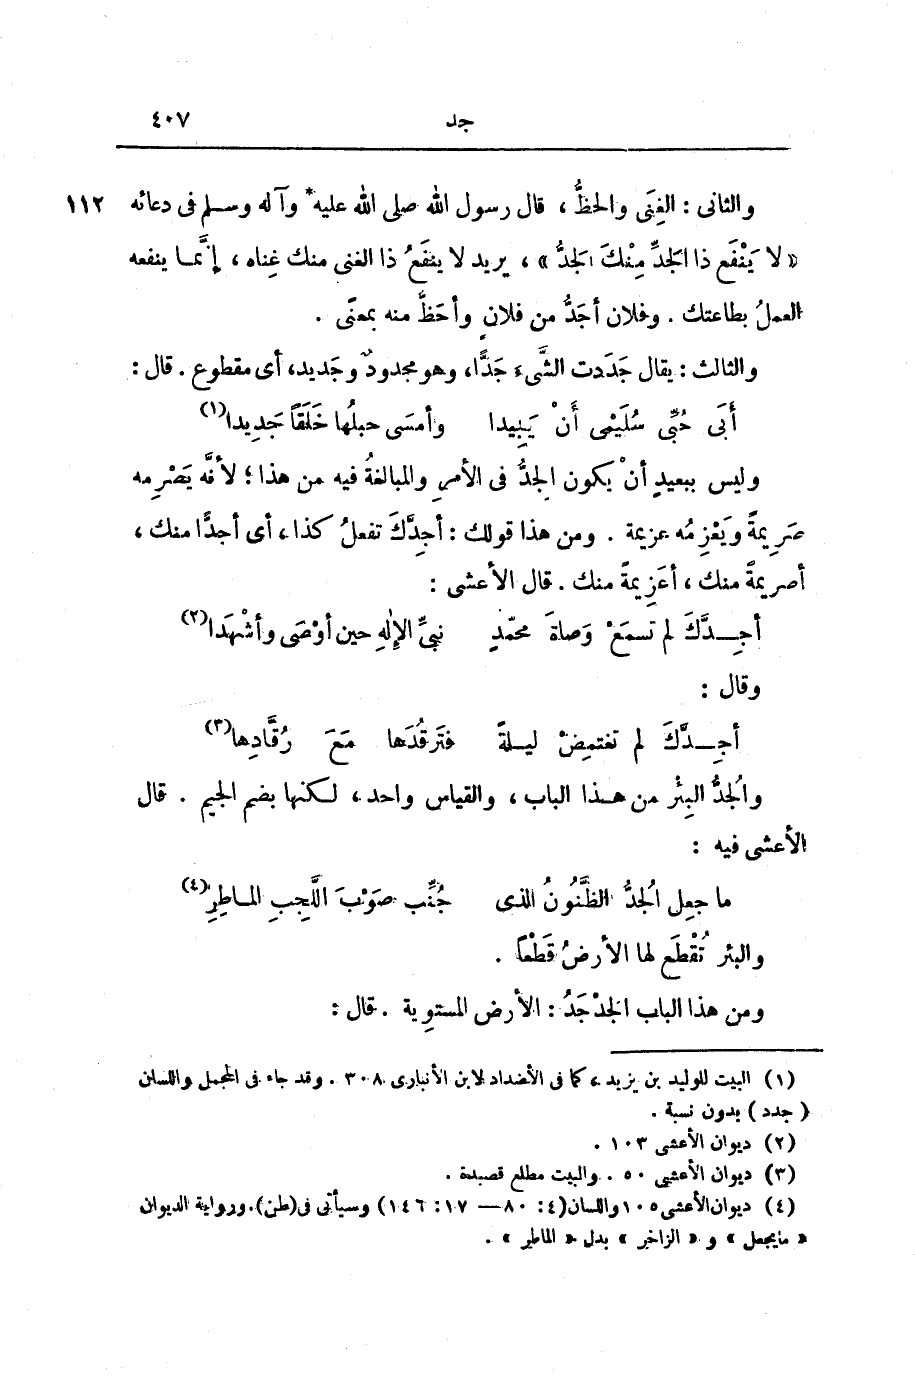 جد ٤٠٧
والثانى : الغِنَى والحظُّ ، قال رسول الله صلى الله عليه* وآله وسلم فى دعائه ١١٢
« لا يَنْفَع ذا الجَدِّ مِنْكَ الجَدُّ » ، يريد لا ينفَعُ ذا الغنى منك غِناه ، إنَّما ينفعه
العملُ بطاعتك . وفلان أجَدُّ من فلانٍ وأحَظُّ منه بمعنًى .
والثالث : يقال جَدَدت الشَّىءَ جَدًّا، وهو مجدودٌ وجَديد، أى مقطوع . قال :
أَبَى حُبِّى سُلَيْمَى أَنْ يَبِيدا وأمسَى حبلُها خَلَقًا جَديدا(١)
وليس ببعيدٍ أنْ يكون الجِدُّ فى الأمرِ والمبالغةُ فيه من هذا ؛ لأنَّه يَصْرِمه
صَرِيمةً ويَعْزِمُه عزيمة . ومن هذا قولك : أجِدَّكَ تفعلُ كذا، أى أجدًّا منك ،
أصريمةً منك ، أعَزِيمةً منك . قال الأعشى :
أجِـدَّكَ لم تسمَعْ وَصاةَ محمّدٍ نبىِّ الإلٰهِ حين أوْصَى وأشْهَدَا(٢)
وقال :
أجِـدَّكَ لم تغتمِضْ ليـلةً فتَرقُدَها مَعَ رُقَّادِها(٣)
والجُدُّ البِئْر من هـذا الباب ، والقياس واحد، لـكنها بضم الجيم . قال
الأعشى فيه :
ما جعِل الجُدُّ الظَّنُونُ الذى جُنِّب صَوْبَ اللَّجِبِ المـاطِرِ(٤)
والبئر تُقْطَع لها الأرضُ قَطْعًا .
ومن هذا الباب الجَدْجَدُ : الأرض المستوِية . قال :
(١) البيت للوليد بن يزيد، كما فى الأضداد لابن الأنبارى ٣٠٨ . وقد جاء فى المجمل واللسان
( جدد ) بدون نسبة .
(٢) ديوان الأعشى ١٠٣ .
(٣) ديوان الأعشى ٥٠ . والبيت مطلع قصيدة .
(٤) ديوان الأعشى ١٠٥ واللسان (٤: ٨٠ — ١٧: ١٤٦) وسيأتى فى (ظن). ورواية الديوان
« ما يجعل » و « الزاخر » بدل « الماطر » .